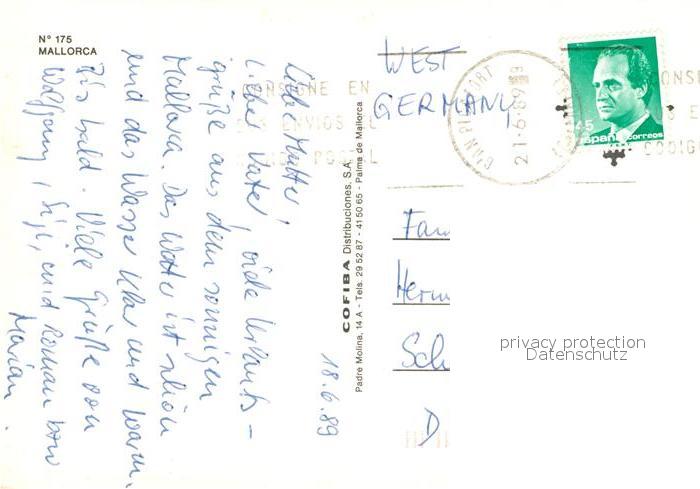 Nº 175
MALLORCA
18.6.89
Liebe Mutter,
lieber Vater, viele Urlaubs-
grüße aus dem sonnigen
Mallorca. Das Wetter ist schön
und das Wasser klar und warm.
Bis bald. Viele Grüße von
Wolfgang, und Roman
Marian.
COFIBA Distribuciones, S.A.
Padre Molina, 14 A - Tels: 29 52 87 - 41 50 65 - Palma de Mallorca
WEST
GERMANY
Fam
Herm
Sch
D
CONSIGNE EN
ENVIOS EL
POSTAL
21-6-89
45
España correos
CONSI
E
CODIG
privacy protection
Datenschutz